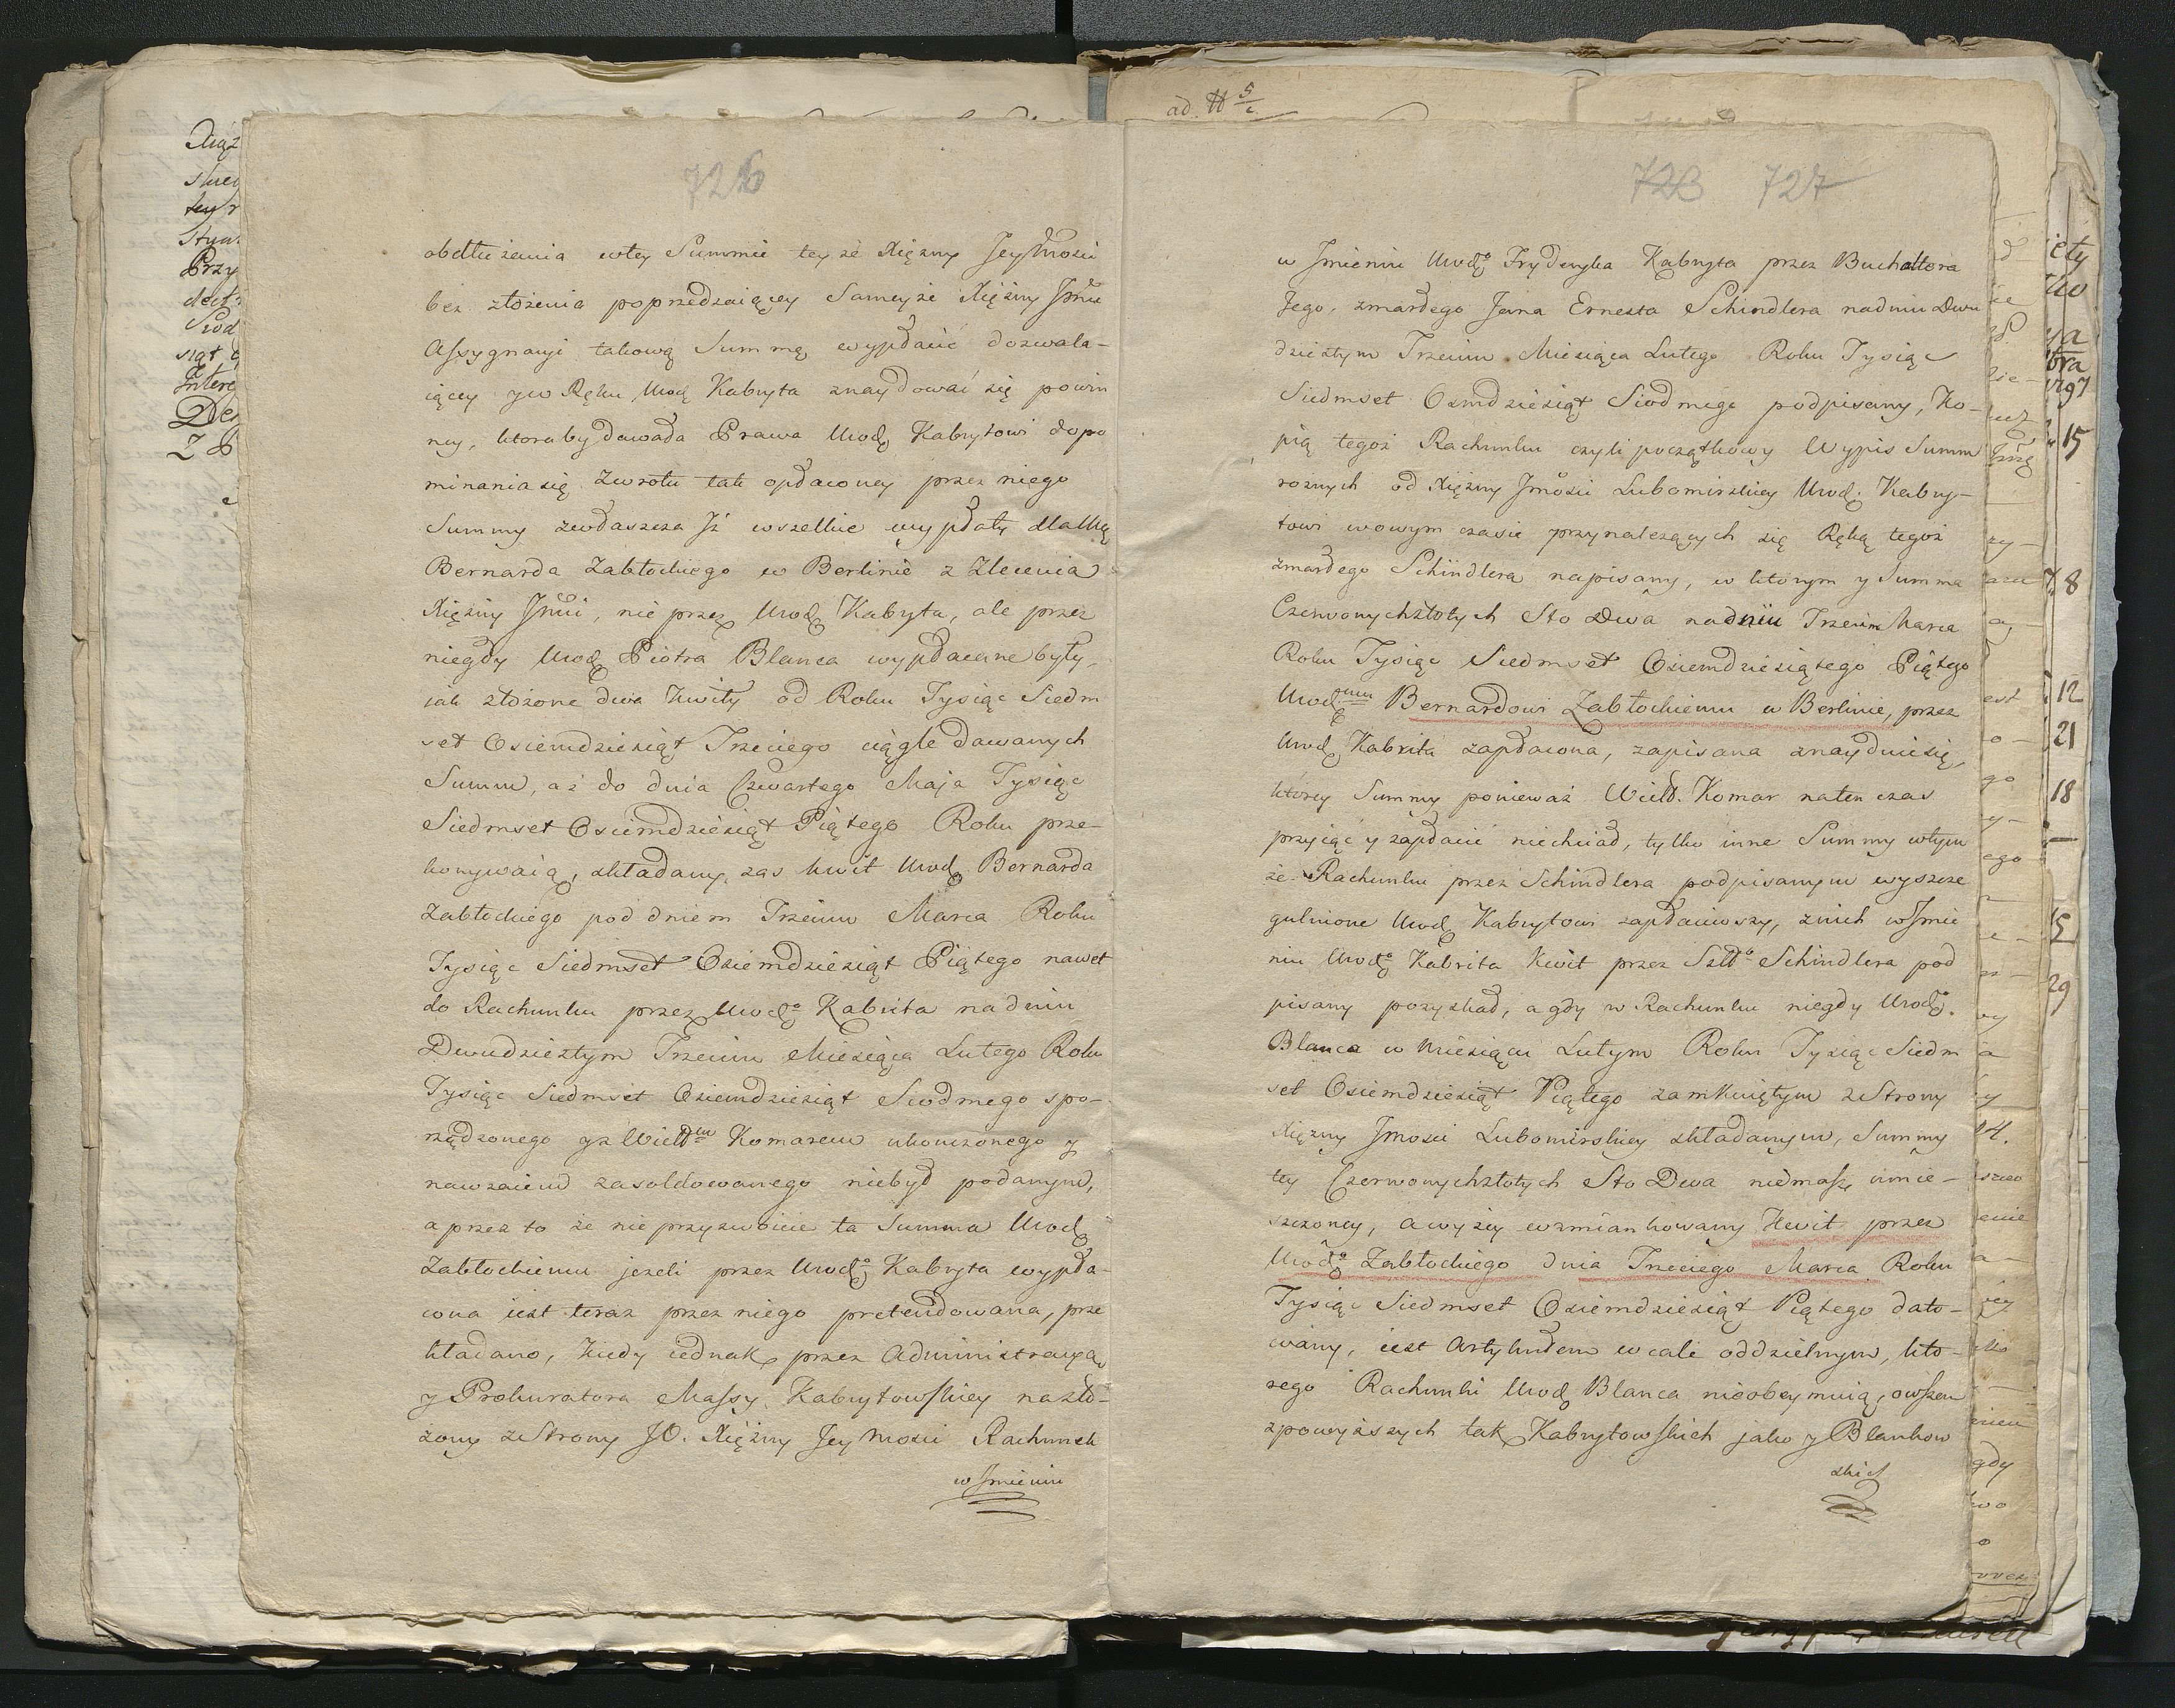 726
obdłużenia wtey Summie tey że Xiężny Jeymosci
bez złożenia poprzedzaiącey Sameyże Xiężny Jmci
Assygnacyi takową Summę wypłacić dozwala-
iącey y w Ręku Urodz Kabryta znaydować się powin
ney, ktoraby dawała Prawa Urodz Kabrytowi dopo
minania się Zwrotu tak opłaconey przez niego
Summy zwłaszcza Iż wszelkie wypłaty dla
Bernarda Zabłockiego w Berlinie z Zlecenia
Xiężny Jmci, nie przez Urodz Kabryta, ale przez
niegdy Urodz Piotra Blanca wypłacane były,
jak złożone dwa Kwity od Roku Tysiąc Siedm
set Osiemdziesiąt Trzeciego ciągle dawanych
Summ, aż do dnia Czwartego Maja Tysiąc
Siedmset Osiemdziesiąt Piątego Roku prze-
konywaią, składany zas kwit Urodz Bernarda
Zabłockiego pod dniem Trzecim Marca Roku
Tysiąc Siedmset Osiemdziesiąt Piątego nawet
do Rachunku przez Urodzo Kabrita na dniu
Dwudziestym Trzecim Miesiąca Lutego Roku
Tysiąc Siedmset Osiemdziesiąt Siodmego spo-
rządzonego y z Wielem Komarem ukończonego y
nawzaiem zasoldowanego niebył podanym,
a przez to że nieprzyzwoicie ta Summa Urodz
Zabłockiemu jezeli przez Urodzo Kabryta wypła-
cona iest teraz przez niego pretendowana, prze
kładano, Kiedy iednak przez Administracyą
y Prokuratora Massy Kabrytowskiey na zło-
żony ze Strony JO. Xiężny Jeymosci Rachunek
w Jmieniu
723 727
w Jmieniu Urodzo Fryderyka Kabryta przez Buchaltora
Jego, zmarłego Jana Ernesta Schindlera na dniu Dwu
dziestym Trzecim Miesiąca Lutego Roku Tysiąc
Siedmset Osmdziesiąt Siodmego podpisany, Ko-
pią tegoż Rachunku czyli początkowy Wypis Summ
roznych od Xiężny Jmości Lubomirskiey Urodz. Kabry-
towi wowym czasie przynależących się Ręką tegoż
zmarłego Schindlera napisany, w ktorym y Summa
Czerwonych złotych Sto Dwa na dniu Trzecim Marca
Roku Tysiąc Siedmset Osiemdziesiątego Piątego
Urodzmu Bernardowi Zabłockiemu w Berlinie, przez
Urodz Kabrita zapłacona, zapisana znayduie się,
ktorey Summy ponieważ Wiel. Komar naten czas
przyiąć y zapłacić niechciał, tylko inne Summy wtym
że Rachunku przez Schindlera podpisanym wyszcze
gulnione Urodz Kabrytowi zapłaciwszy, znich wJmie
niu Urodzo Kabrita Kwit przez Szlo Schindlera pod
pisany pozyskał, a gdy w Rachunku niegdy Urodzo.
Blanca w Miesiącu Lutym Roku Tysiąc Siedm
set Osiemdziesiąt Piątego zamkniętym ze Strony
Xiężny Jmosci Lubomirskiey składanym, Summy
tey Czerwonych złotych Sto Dwa niemasz umie-
szczoney, a wyżey wzmiankowany Kwit przez
Urodzo Zabłockiego dnia Trzeciego Marca Roku
Tysiąc Siedmset Osiemdziesiąt Piątego dato-
wany, iest Artykułem wcale oddzielnym, kto-
rego Rachunki Urodz Blanca nieobeymuią, owszem
zpowyższych tak Kabrytowskich jako y Blankow
skich
ad. 5
15
8
12
21
18
15
29